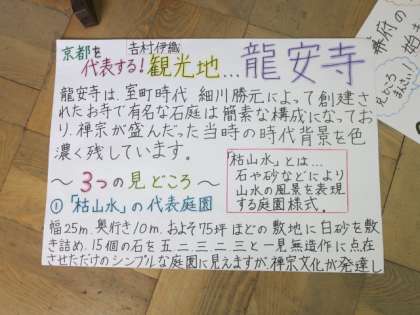 京都を 吉村伊織
代表する!観光地...龍安寺
龍安寺は、室町時代 細川勝元によって創建さ
れたお寺で有名な石庭は簡素な構成になってお
り、禅宗が盛んだった当時の時代背景を色
濃く残しています。
「枯山水」とは...
石や砂などにより
山水の風景を表現
する庭園様式.
～3つの見どころ～
①「枯山水」の代表庭園
幅25m.奥行き10m.およそ75坪ほどの敷地に白砂を敷
き詰め、15個の石を五 二 三 二 三と一見無造作に点在
させただけのシンプルな庭園に見えますが、禅宗文化が発達し
幕府の
見どころ